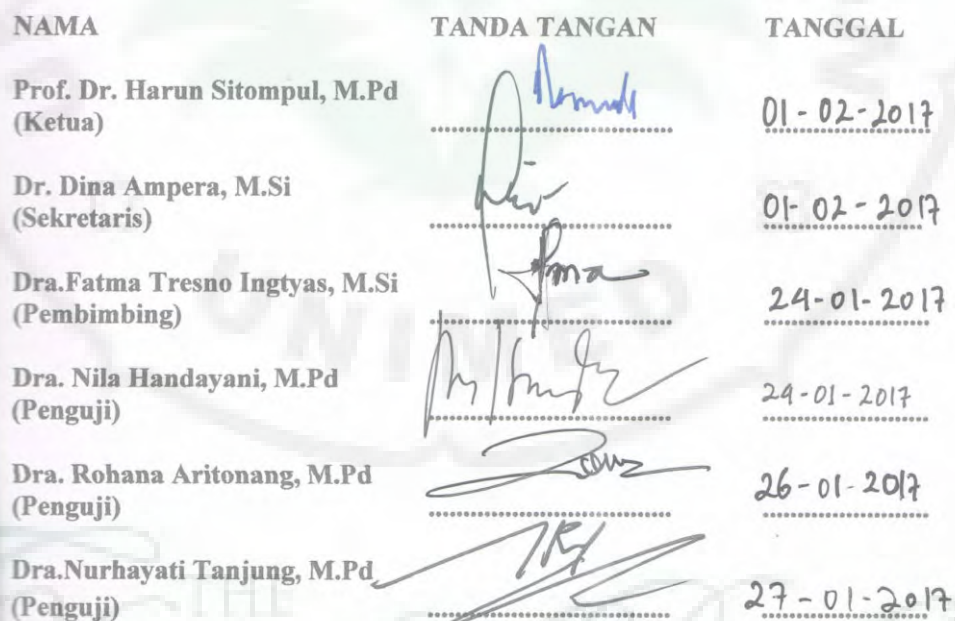 NAMA TANDA TANGAN TANGGAL
Prof. Dr. Harun Sitompul, M.Pd
(Ketua) 01-02-2017
Dr. Dina Ampera, M.Si
(Sekretaris) 01-02-2017
Dra.Fatma Tresno Ingtyas, M.Si
(Pembimbing) 24-01-2017
Dra. Nila Handayani, M.Pd
(Penguji) 24-01-2017
Dra. Rohana Aritonang, M.Pd
(Penguji) 26-01-2017
Dra.Nurhayati Tanjung, M.Pd
(Penguji) 27-01-2017
UNIMED
THE